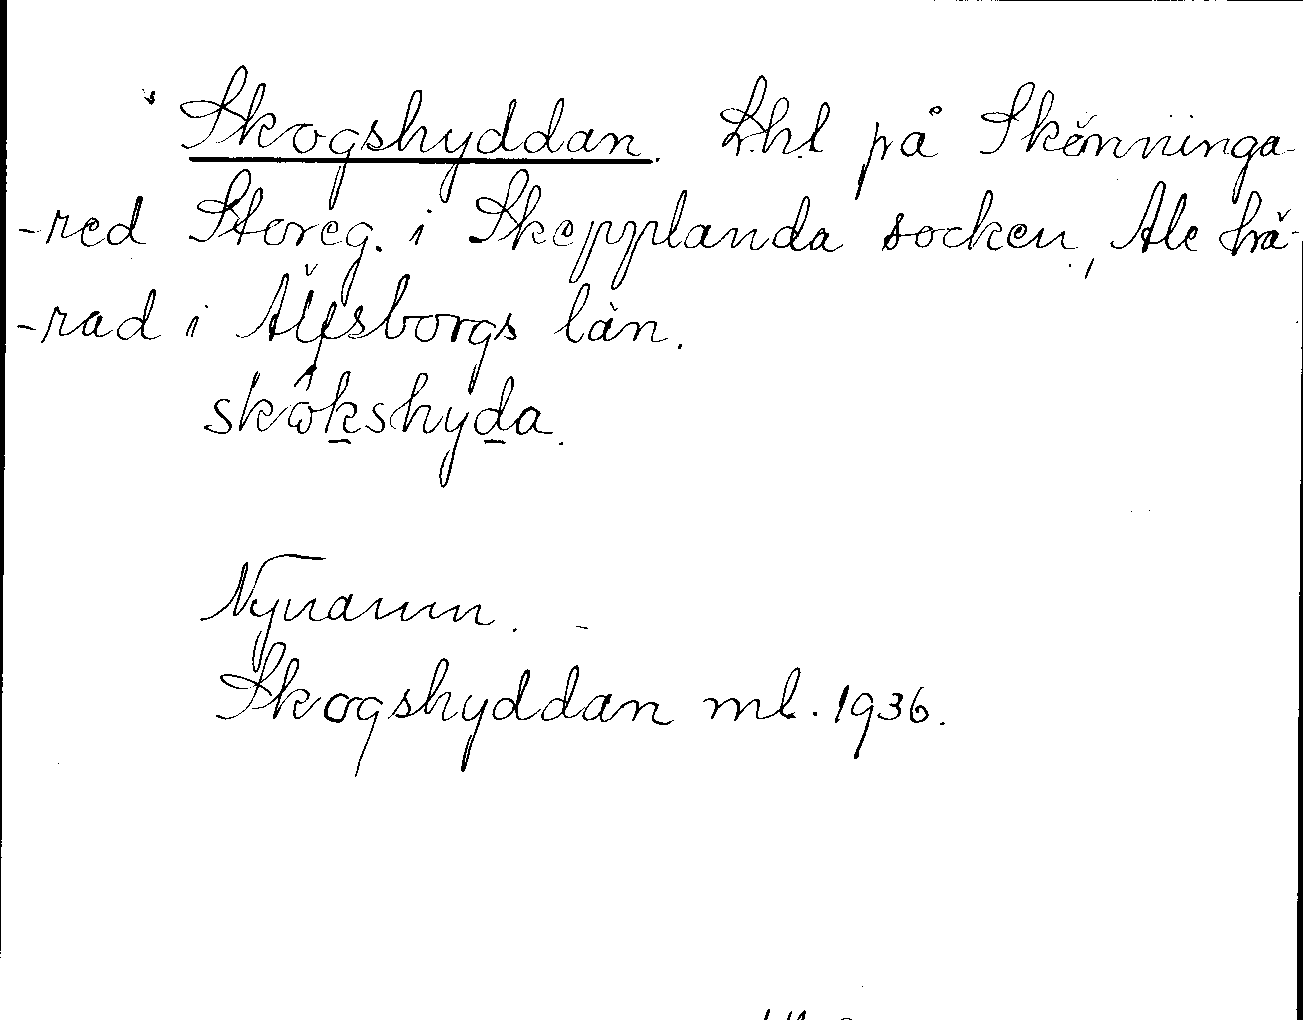 Skogshyddan. Lhl på Skönninga-
-red Storeg. i Skepplanda socken, Ale hä-
-rad i Älfsborgs län.
skôkshyda.
Nynamn.
Skogshyddan ml. 1936.